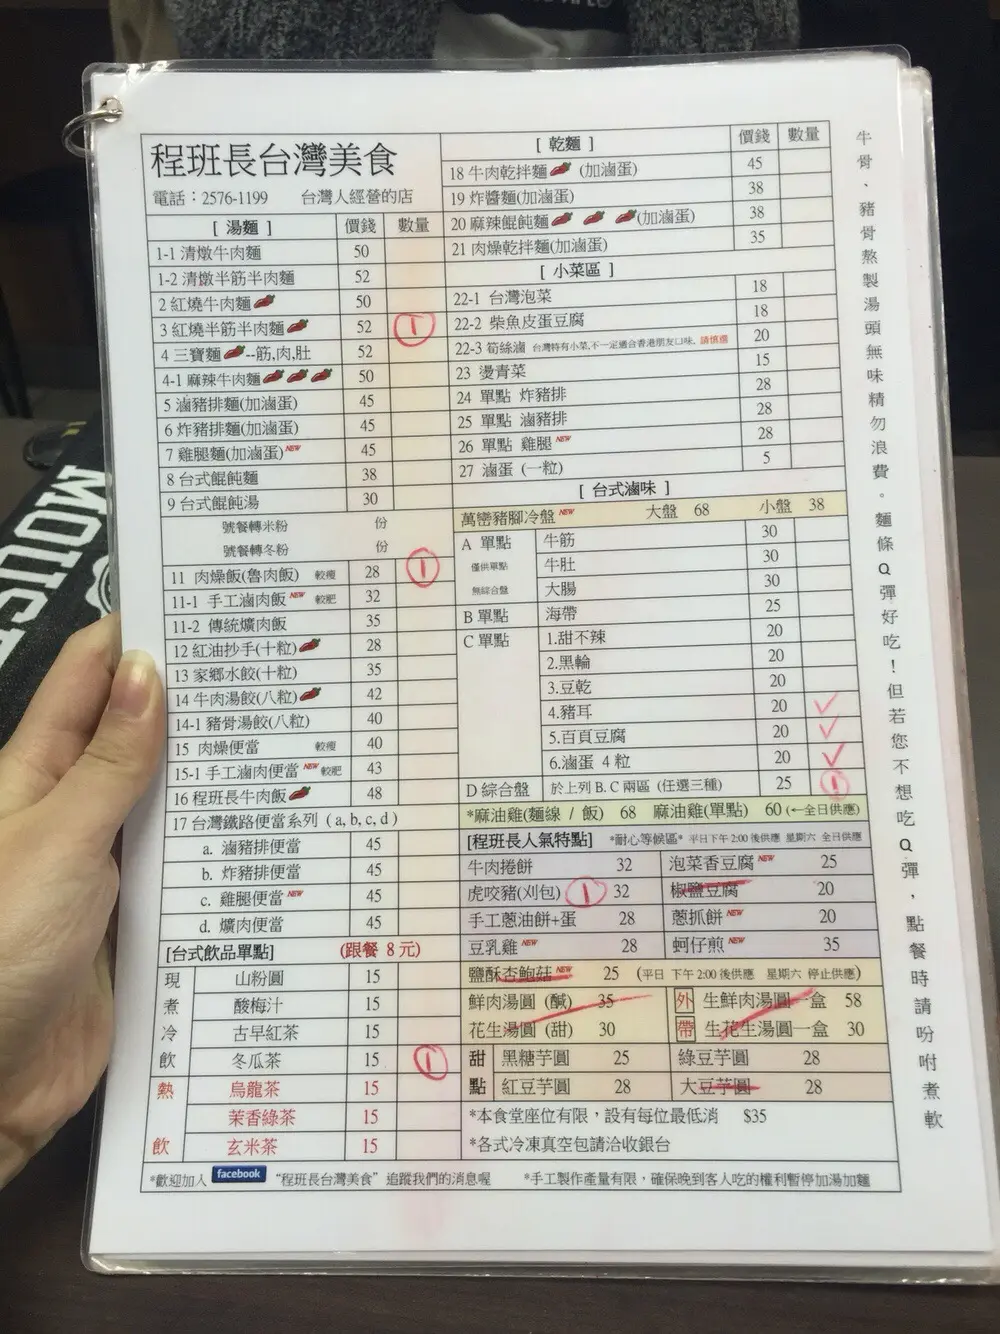 程班長台灣美食
電話：2576-1199 台灣人經營的店
[ 湯麵 ] 價錢 數量
1-1 清燉牛肉麵 50
1-2 清燉半筋半肉麵 52
2 紅燒牛肉麵 50
3 紅燒半筋半肉麵 52 1
4 三寶麵 --筋,肉,肚 52
4-1 麻辣牛肉麵 50
5 滷豬排麵(加滷蛋) 45
6 炸豬排麵(加滷蛋) 45
7 雞腿麵(加滷蛋) NEW 45
8 台式餛飩麵 38
9 台式餛飩湯 30
號餐轉米粉 份
號餐轉冬粉 份
11 肉燥飯(魯肉飯) 較瘦 28 1
11-1 手工滷肉飯 NEW 較肥 32
11-2 傳統爌肉飯 35
12 紅油抄手(十粒) 28
13 家鄉水餃(十粒) 35
14 牛肉湯餃(八粒) 42
14-1 豬骨湯餃(八粒) 40
15 肉燥便當 較瘦 40
15-1 手工滷肉便當 NEW 較肥 43
16 程班長牛肉飯 48
17 台灣鐵路便當系列 ( a, b, c, d )
a. 滷豬排便當 45
b. 炸豬排便當 45
c. 雞腿便當 NEW 45
d. 爌肉便當 45
[台式飲品單點] (跟餐 8 元)
現煮冷飲
山粉圓 15
酸梅汁 15
古早紅茶 15
冬瓜茶 15 1
熱飲
烏龍茶 15
茉香綠茶 15
玄米茶 15
[ 乾麵 ] 價錢 數量
18 牛肉乾拌麵 (加滷蛋) 45
19 炸醬麵(加滷蛋) 38
20 麻辣餛飩麵 (加滷蛋) 38
21 肉燥乾拌麵(加滷蛋) 35
[ 小菜區 ]
22-1 台灣泡菜 18
22-2 柴魚皮蛋豆腐 18
22-3 筍絲滷 台灣特有小菜,不一定適合香港朋友口味, 請慎選 20
23 燙青菜 15
24 單點 炸豬排 28
25 單點 滷豬排 28
26 單點 雞腿 NEW 28
27 滷蛋 (一粒) 5
[ 台式滷味 ]
萬巒豬腳冷盤 NEW 大盤 68 小盤 38
A 單點 牛筋 30
僅供單點 牛肚 30
無綜合盤 大腸 30
B 單點 海帶 25
C 單點 1.甜不辣 20
2.黑輪 20
3.豆乾 20
4.豬耳 20 ✓
5.百頁豆腐 20 ✓
6.滷蛋 4 粒 20 ✓
D 綜合盤 於上列 B. C 兩區 (任選三種) 25 1
*麻油雞(麵線 / 飯) 68 麻油雞(單點) 60 (←全日供應)
[程班長人氣特點] *耐心等候區* 平日下午 2:00 後供應 星期六 全日供應
牛肉捲餅 32 泡菜香豆腐 NEW 25
虎咬豬(刈包) 1 32 椒鹽豆腐 20
手工蔥油餅+蛋 28 蔥抓餅 NEW 20
豆乳雞 NEW 28 蚵仔煎 NEW 35
鹽酥杏鮑菇 NEW 25 (平日 下午 2:00 後供應 星期六 停止供應)
鮮肉湯圓 (鹹) 35 外 生鮮肉湯圓一盒 58
花生湯圓 (甜) 30 帶 生花生湯圓一盒 30
甜 黑糖芋圓 25 綠豆芋圓 28
點 紅豆芋圓 28 大豆芋圓 28
*本食堂座位有限，設有每位最低消 $35
*各式冷凍真空包請洽收銀台
*歡迎加入 facebook “程班長台灣美食” 追蹤我們的消息喔 *手工製作產量有限，確保晚到客人吃的權利暫停加湯加麵
牛骨、豬骨熬製湯頭無味精勿浪費。麵條Q彈好吃！但若您不想吃Q彈，點餐時請吩咐煮軟
MOUSE